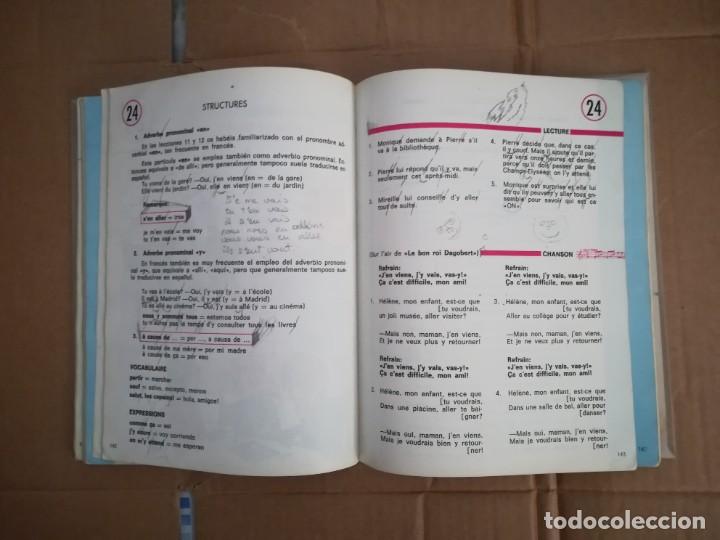 24
STRUCTURES
1. Adverbe pronominal «en»
En las lecciones 11 y 12 os habéis familiarizado con el pronombre ad-
verbial «en», tan frecuente en francés.
Esta partícula «en» se emplea también como adverbio pronominal. En-
tonces equivale a «de allí», pero generalmente tampoco suele traducirse en
español.
Tu viens de la gare? —Oui, j'en viens (en = de la gare)
Elle vient du jardin? —Oui, elle en vient (en = du jardin)
Remarque:
s'en aller = irse
je m'en vais = me voy
tu t'en vas = te vas
Je me vais
tu t'en vas
il s'en va
nous nous en
vous vous en
ils s'en vont
2. Adverbe pronominal «y»
En francés también es muy frecuente el empleo del adverbio pronomi-
nal «y», que equivale a «allí», «aquí», pero que generalmente tampoco sue-
le traducirse en español.
Tu vas à l'école? —Oui, j'y vais (y = à l'école)
Il est à Madrid? —Oui, il y est (y = à Madrid)
Tu es allé au cinéma? —Oui, j'y suis allé (y = au cinéma)
nous y sommes tous = estamos todos
tu n'auras pas le temps d'y consulter tous les livres
3.
à cause de ... = por ..., a causa de ...
à cause de ma mère = por mi madre
à cause de ça = por eso
VOCABULAIRE
partir = marchar
sauf = salvo, excepto, menos
salut, les copains! = hola, amigos!
EXPRESSIONS
comme ça = así
j'y cours = voy corriendo
on m'y attend = me esperan
142
24
LECTURE
1. Monique demande à Pierre s'il
va à la bibliothèque.
2. Pierre lui répond qu'il y va, mais
seulement cet après-midi.
3. Mireille lui conseille d'y aller
tout de suite.
4. Pierre décide que, dans ce cas,
il y court. Mais il ajoute qu'il par-
tira vers onze heures et demie,
parce qu'il doit passer par les
Champs-Elysées: on l'y attend.
5. Monique est surprise et elle lui
dit qu'ils peuvent y aller tous en-
semble pour savoir qui est ce
«ON».
(Sur l'air de «Le bon roi Dagobert»)
CHANSON
Refrain:
«J'en viens, j'y vais, vas-y!»
Ça c'est difficile, mon ami!
1. Hélène, mon enfant, est-ce que
[tu voudrais,
un joli musée, aller visiter?
—Mais non, maman, j'en viens,
Et je ne veux plus y retourner!
Refrain:
«J'en viens, j'y vais, vas-y!»
Ça c'est difficile, mon ami!
2. Hélène, mon enfant, est-ce que
[tu voudrais,
Dans une piscine, aller te bai-
[gner?
—Mais oui, maman, j'en viens,
Mais je voudrais bien y retour-
[ner!
Refrain:
«J'en viens, j'y vais, vas-y!»
Ça c'est difficile, mon ami!
3. Hélène, mon enfant, est-ce que
[tu voudrais,
Aller au collège pour y étudier?
—Mais non, maman, j'en viens,
Et je ne veux plus y retourner!
Refrain:
«J'en viens, j'y vais, vas-y!»
Ça c'est difficile, mon ami!
4. Hélène, mon enfant, est-ce que
[tu voudrais,
Dans une salle de bal, aller pour
[danser?
—Mais oui, maman, j'en viens,
Mais je voudrais bien y retour-
[ner!
143
todocoleccion.net